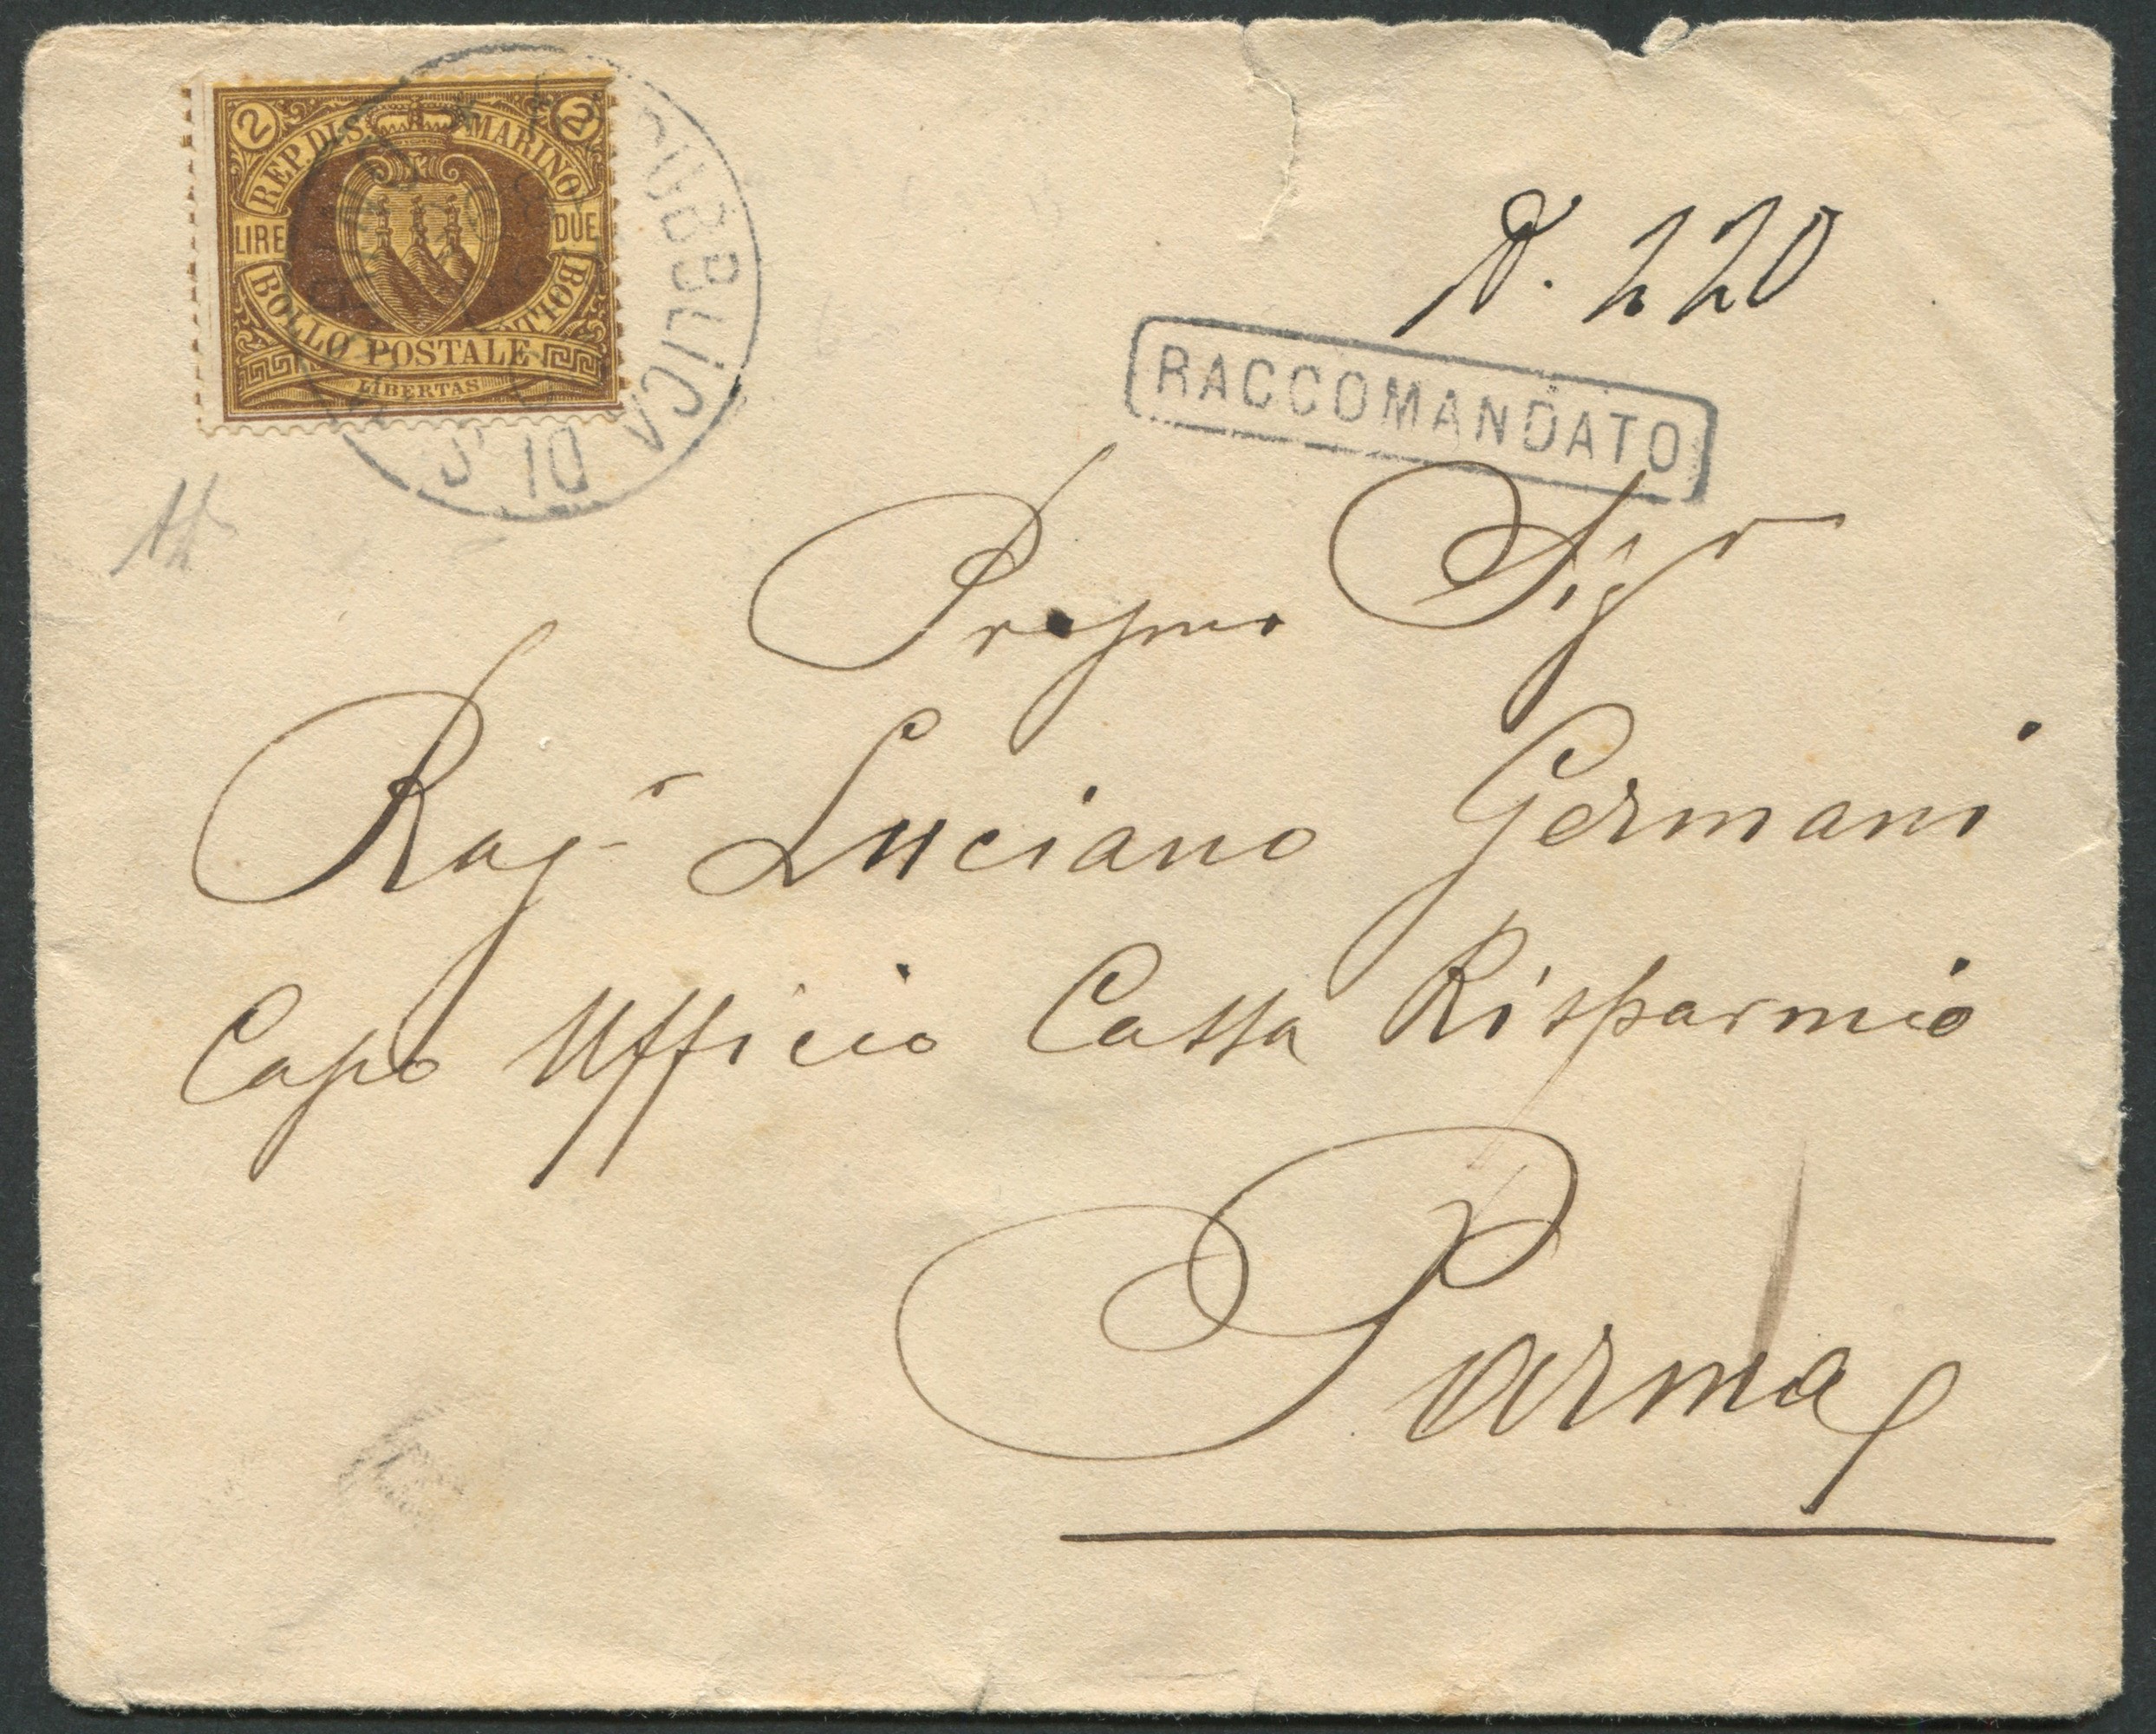 2 2
REP. DI S. MARINO
LIRE DUE
BOLLO POSTALE BOLLO
LIBERTAS
REPUBBLICA DI S.
N. 220
RACCOMANDATO
Pregmo Sigr
Ragr Luciano Germani
Capo Ufficio Cassa Risparmio
Parma